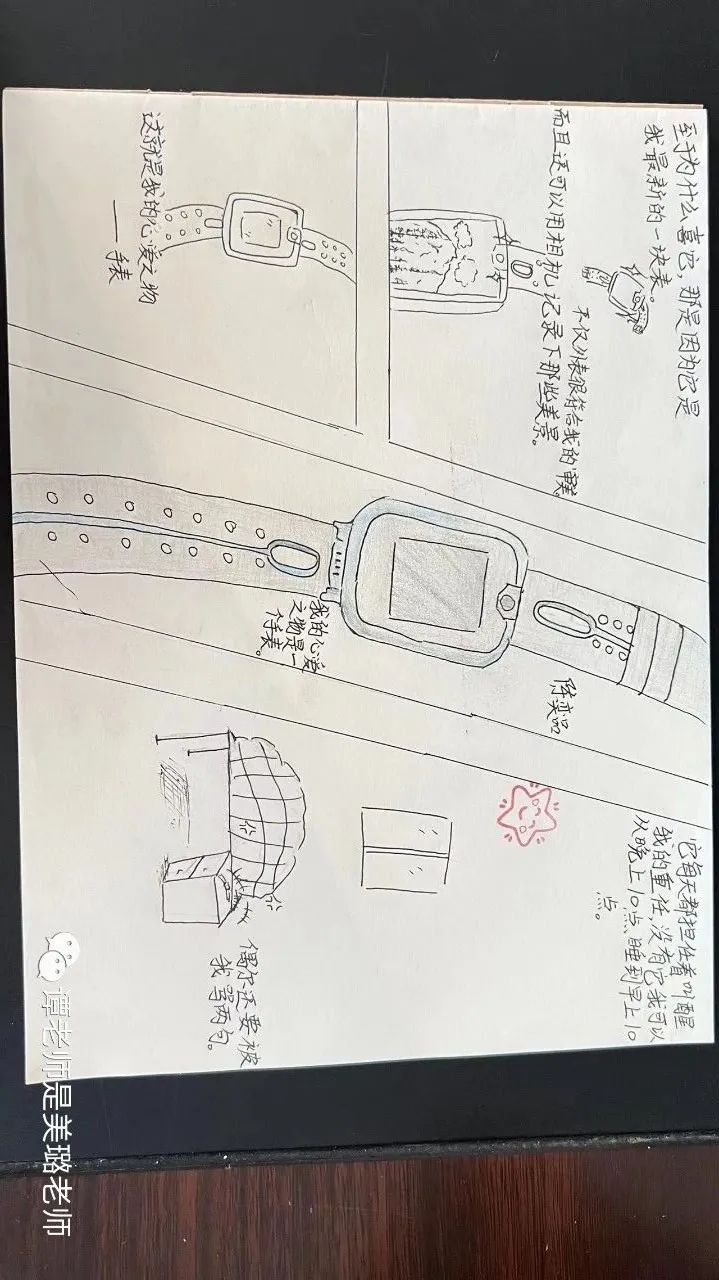 至于为什么喜它，那是因为它是
我最新的一块表。
不仅外表很符合我的审美
而且还可以用相机记录下那些美景。
这就是我的心爱之物
——手表
我的心爱
之物是一
表。
它每天都担任着叫醒
我的重任，没有它我可以
从晚上10点睡到早上10
点。
偶尔还要被
我骂两句。
谭老师是美璐老师